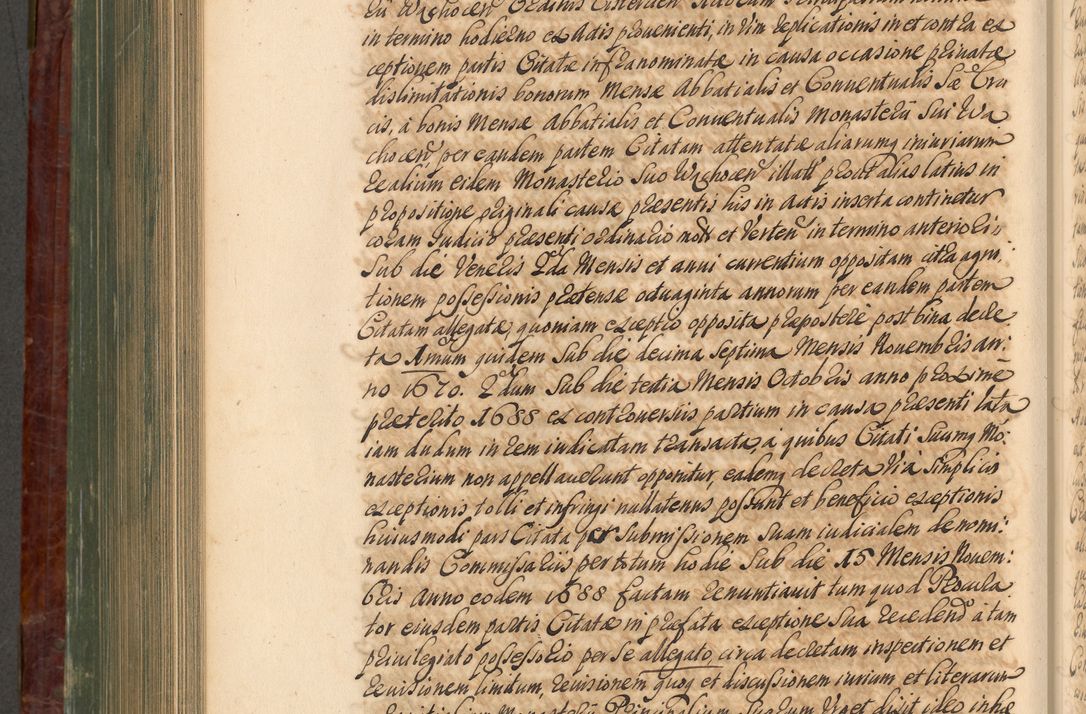 in termino hodierno ex Actis provenienti, in vim replicationis in et contra ex
ceptionem partis Citatæ infranominatæ in causa occasione privatæ
dislimitationis bonorum Mensæ Abbatialis et Conventualis Sæ Cru
cis, à bonis Mensæ Abbatialis et Conventualis Monasterÿ sui Wa
chocen̄ per eandem partem Citatam attentatæ aliarumq iniuriarum
realium eidem Monasterio suo Wąchocen̄ illatt prout alias latius in
propositione originali causæ præsentis his in actis inserta continetur
coram Judicio præsenti ordinario mott et Verten̄ in termino anteriori
Sub die Veneris 2da Mensis et anni currentium oppositam citra agni,
tionem possessionis prætensæ octuaginta annorum per eandem partem
Citatam allegatæ, quoniam exceptio opposita præpostere post bina decre
ta Imum quidem Sub die decima Septima Mensis Novembris an:
no 1670. 2dum Sub die tertia Mensis Octobris anno proxime
præterito 1688 ex controversiis partium in causa præsenti lata
iam dudum in rem iudicatam transacta, à quibus Citati Suumq Mo:
nasterium non appellaverunt opponitur, eademq decreta Via Simplicis
exceptionis tolli et infringi nullatenus possunt et beneficio exceptionis
huiusmodi pars Citata per Submissionem Suam iudicialem denomi:
nandis Commissariis per totum hodie Sub die 15 Mensis Novem:
bris Anno eodem 1688 factam renuntiavit tum quod Procura
tor eiusdem partis Citatæ in præfata exceptione Sua recedend à tam
privilegiato possessorio per se allegato, circa decretam inspectionem et
revisionem limitum, revisionem quoq et discussionem iurium et literarum